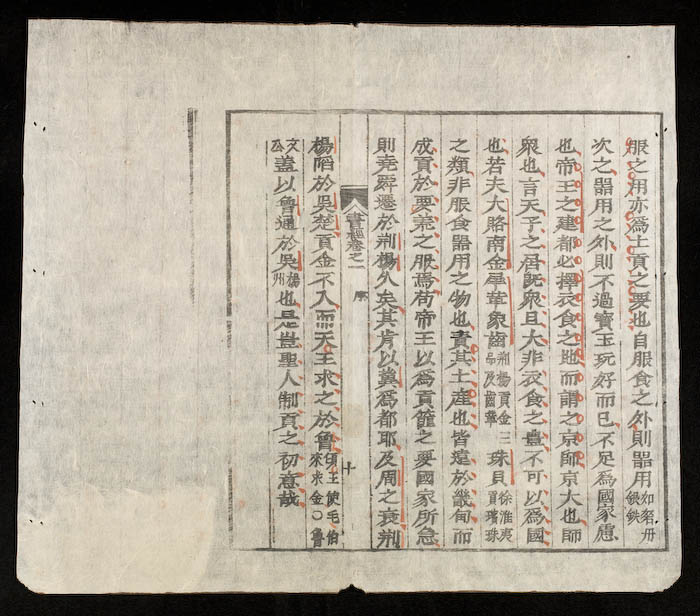 服之用亦爲土貢之要也自服食之外則器用如桼丹銀鉄
次之器用之外則不過寶玉玩好而已不足爲國家慮
也帝王之建都必擇衣食之地而謂之京師京大也師
衆也言天子之居旣衆且大非衣食之豊不可以爲國
也若夫大賂南金犀革象齒荆楊貢金三品及齒革珠貝徐淮夷貢璸珠
之類非服食器用之物也責其土產也皆遠於畿甸而
成貢於要荒之服焉苟帝王以爲貢篚之要國家所急
則堯舜遷於荆楊久矣其肯以冀爲都耶及周之衰荆
書經卷之一 序 十
楊陷於吳楚貢金不入而天王求之於魯頃王使毛伯來求金○魯
文公蓋以魯通於吳楊州也是豈聖人制貢之初意哉